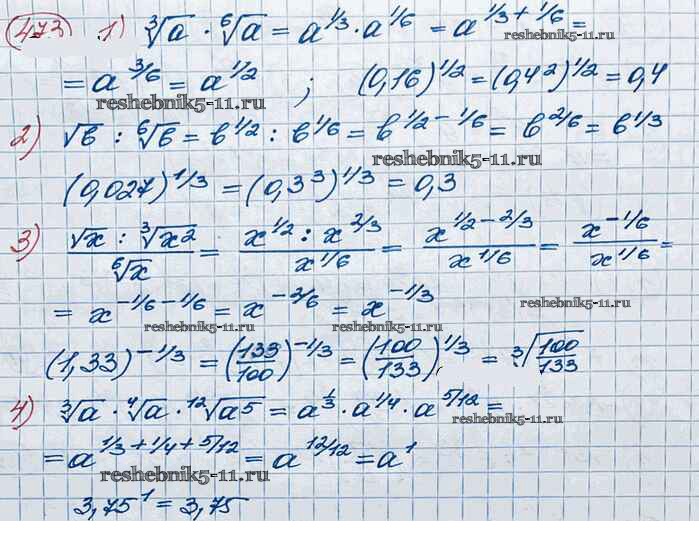 473 1) ∛a · ⁶√a = a^(1/3) · a^(1/6) = a^(1/3 + 1/6) =
reshebnik5-11.ru
= a^(3/6) = a^(1/2) ; (0,16)^(1/2) = (0,4²)^(1/2) = 0,4
reshebnik5-11.ru
2) √b : ⁶√b = b^(1/2) : b^(1/6) = b^(1/2 - 1/6) = b^(2/6) = b^(1/3)
reshebnik5-11.ru
(0,027)^(1/3) = (0,3³)^(1/3) = 0,3
3) (√x : ∛x²)/(⁶√x) = (x^(1/2) : x^(2/3))/(x^(1/6)) = (x^(1/2 - 2/3))/(x^(1/6)) = (x^(-1/6))/(x^(1/6)) =
= x^(-1/6 - 1/6) = x^(-2/6) = x^(-1/3)
reshebnik5-11.ru
reshebnik5-11.ru reshebnik5-11.ru
(1,33)^(-1/3) = (133/100)^(-1/3) = (100/133)^(1/3) = ∛(100/133)
4) ∛a · ⁴√a · ¹²√a⁵ = a^(1/3) · a^(1/4) · a^(5/12) =
reshebnik5-11.ru
= a^(1/3 + 1/4 + 5/12) = a^(12/12) = a¹
reshebnik5-11.ru
3,75¹ = 3,75
reshebnik5-11.ru